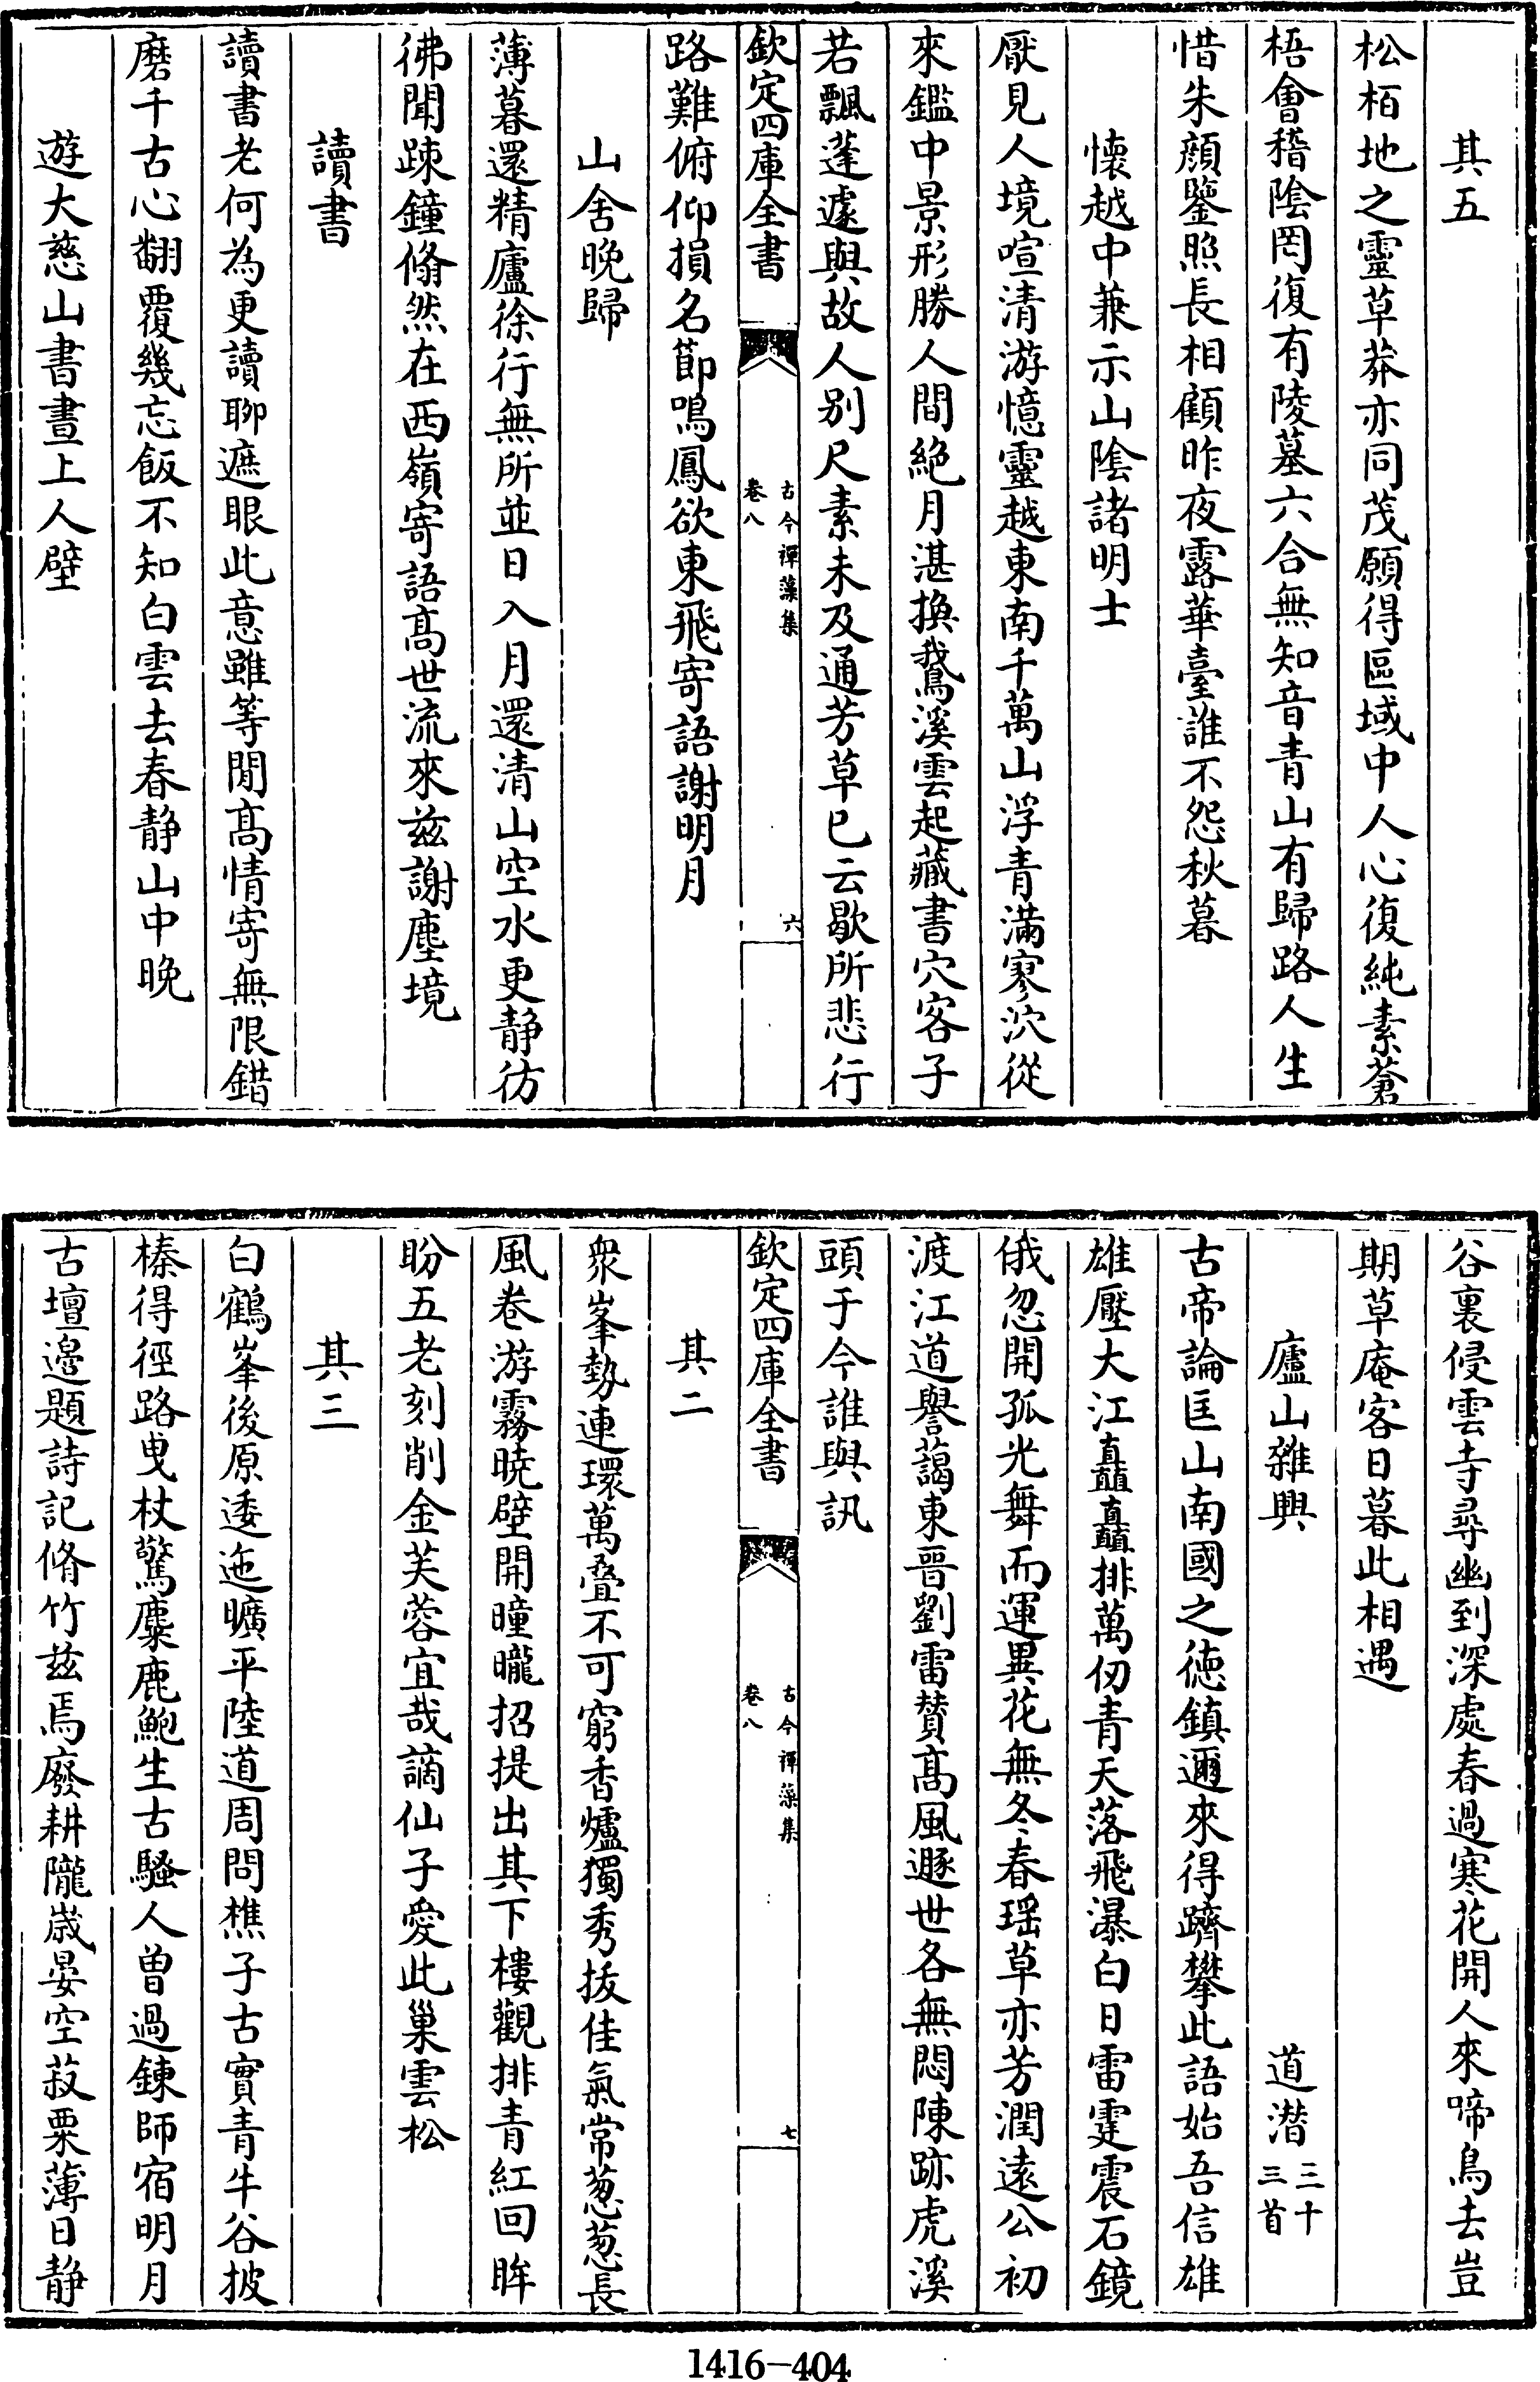 其五
松栢地之靈草莽亦同茂願得區域中人心復純素蒼
梧會稽隂罔復有陵墓六合無知音青山有歸路人生
惜朱顔鑒照長相顧昨夜露華臺誰不怨秋暮
懐越中兼示山隂諸明士
厭見人境喧清游憶靈越東南千萬山浮青滿寥泬從
來鑑中景形勝人間絶月湛換鵞溪雲起藏書穴客子
若飄蓬遽與故人别尺素未及通芳草已云歇所悲行
欽定四庫全書
古今禪藻集
卷八
六
路難俯仰損名節鳴鳳欲東飛寄語謝明月
山舍晚歸
薄暮還精廬徐行無所並日入月還清山空水更静彷
彿聞疎鐘翛然在西嶺寄語髙世流來兹謝塵境
讀書
讀書老何為更讀聊遮眼此意雖等閒髙情寄無限錯
磨千古心翻覆幾忘飯不知白雲去春静山中晚
遊大慈山書晝上人壁
谷裏侵雲寺尋幽到深處春過寒花開人來啼鳥去豈
期草庵客日暮此相遇
廬山雜興
道潛
三十
三首
古帝論匡山南國之徳鎮邇來得躋攀此語始吾信雄
雄壓大江矗矗排萬仞青天落飛瀑白日雷霆震石鏡
俄忽開孤光舞而運異花無冬春瑶草亦芳潤遠公初
渡江道譽藹東晉劉雷賛髙風遯世各無悶陳跡虎溪
頭于今誰與訊
欽定四庫全書
古今禪藻集
卷八
七
其二
衆峯勢連環萬叠不可窮香爐獨秀拔佳氣常葱葱長
風卷游霧曉壁開曈曨招提出其下樓觀排青紅回眸
盼五老刻削金芙蓉宜哉謫仙子愛此巢雲松
其三
白鶴峯後原逶迤曠平陸道周問樵子古實青牛谷披
榛得徑路曳杖驚麋鹿鮑生古騷人曽過錬師宿明月
古壇邉題詩記脩竹兹焉廢耕隴歳晏空菽粟薄日静
1416-404